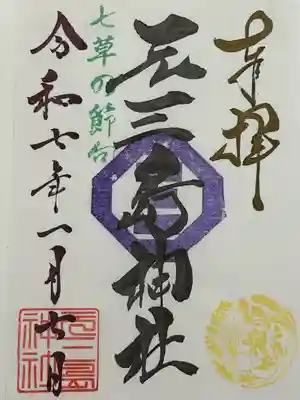 奉拝
元三島神社
七草の節句
令和七年一月七日